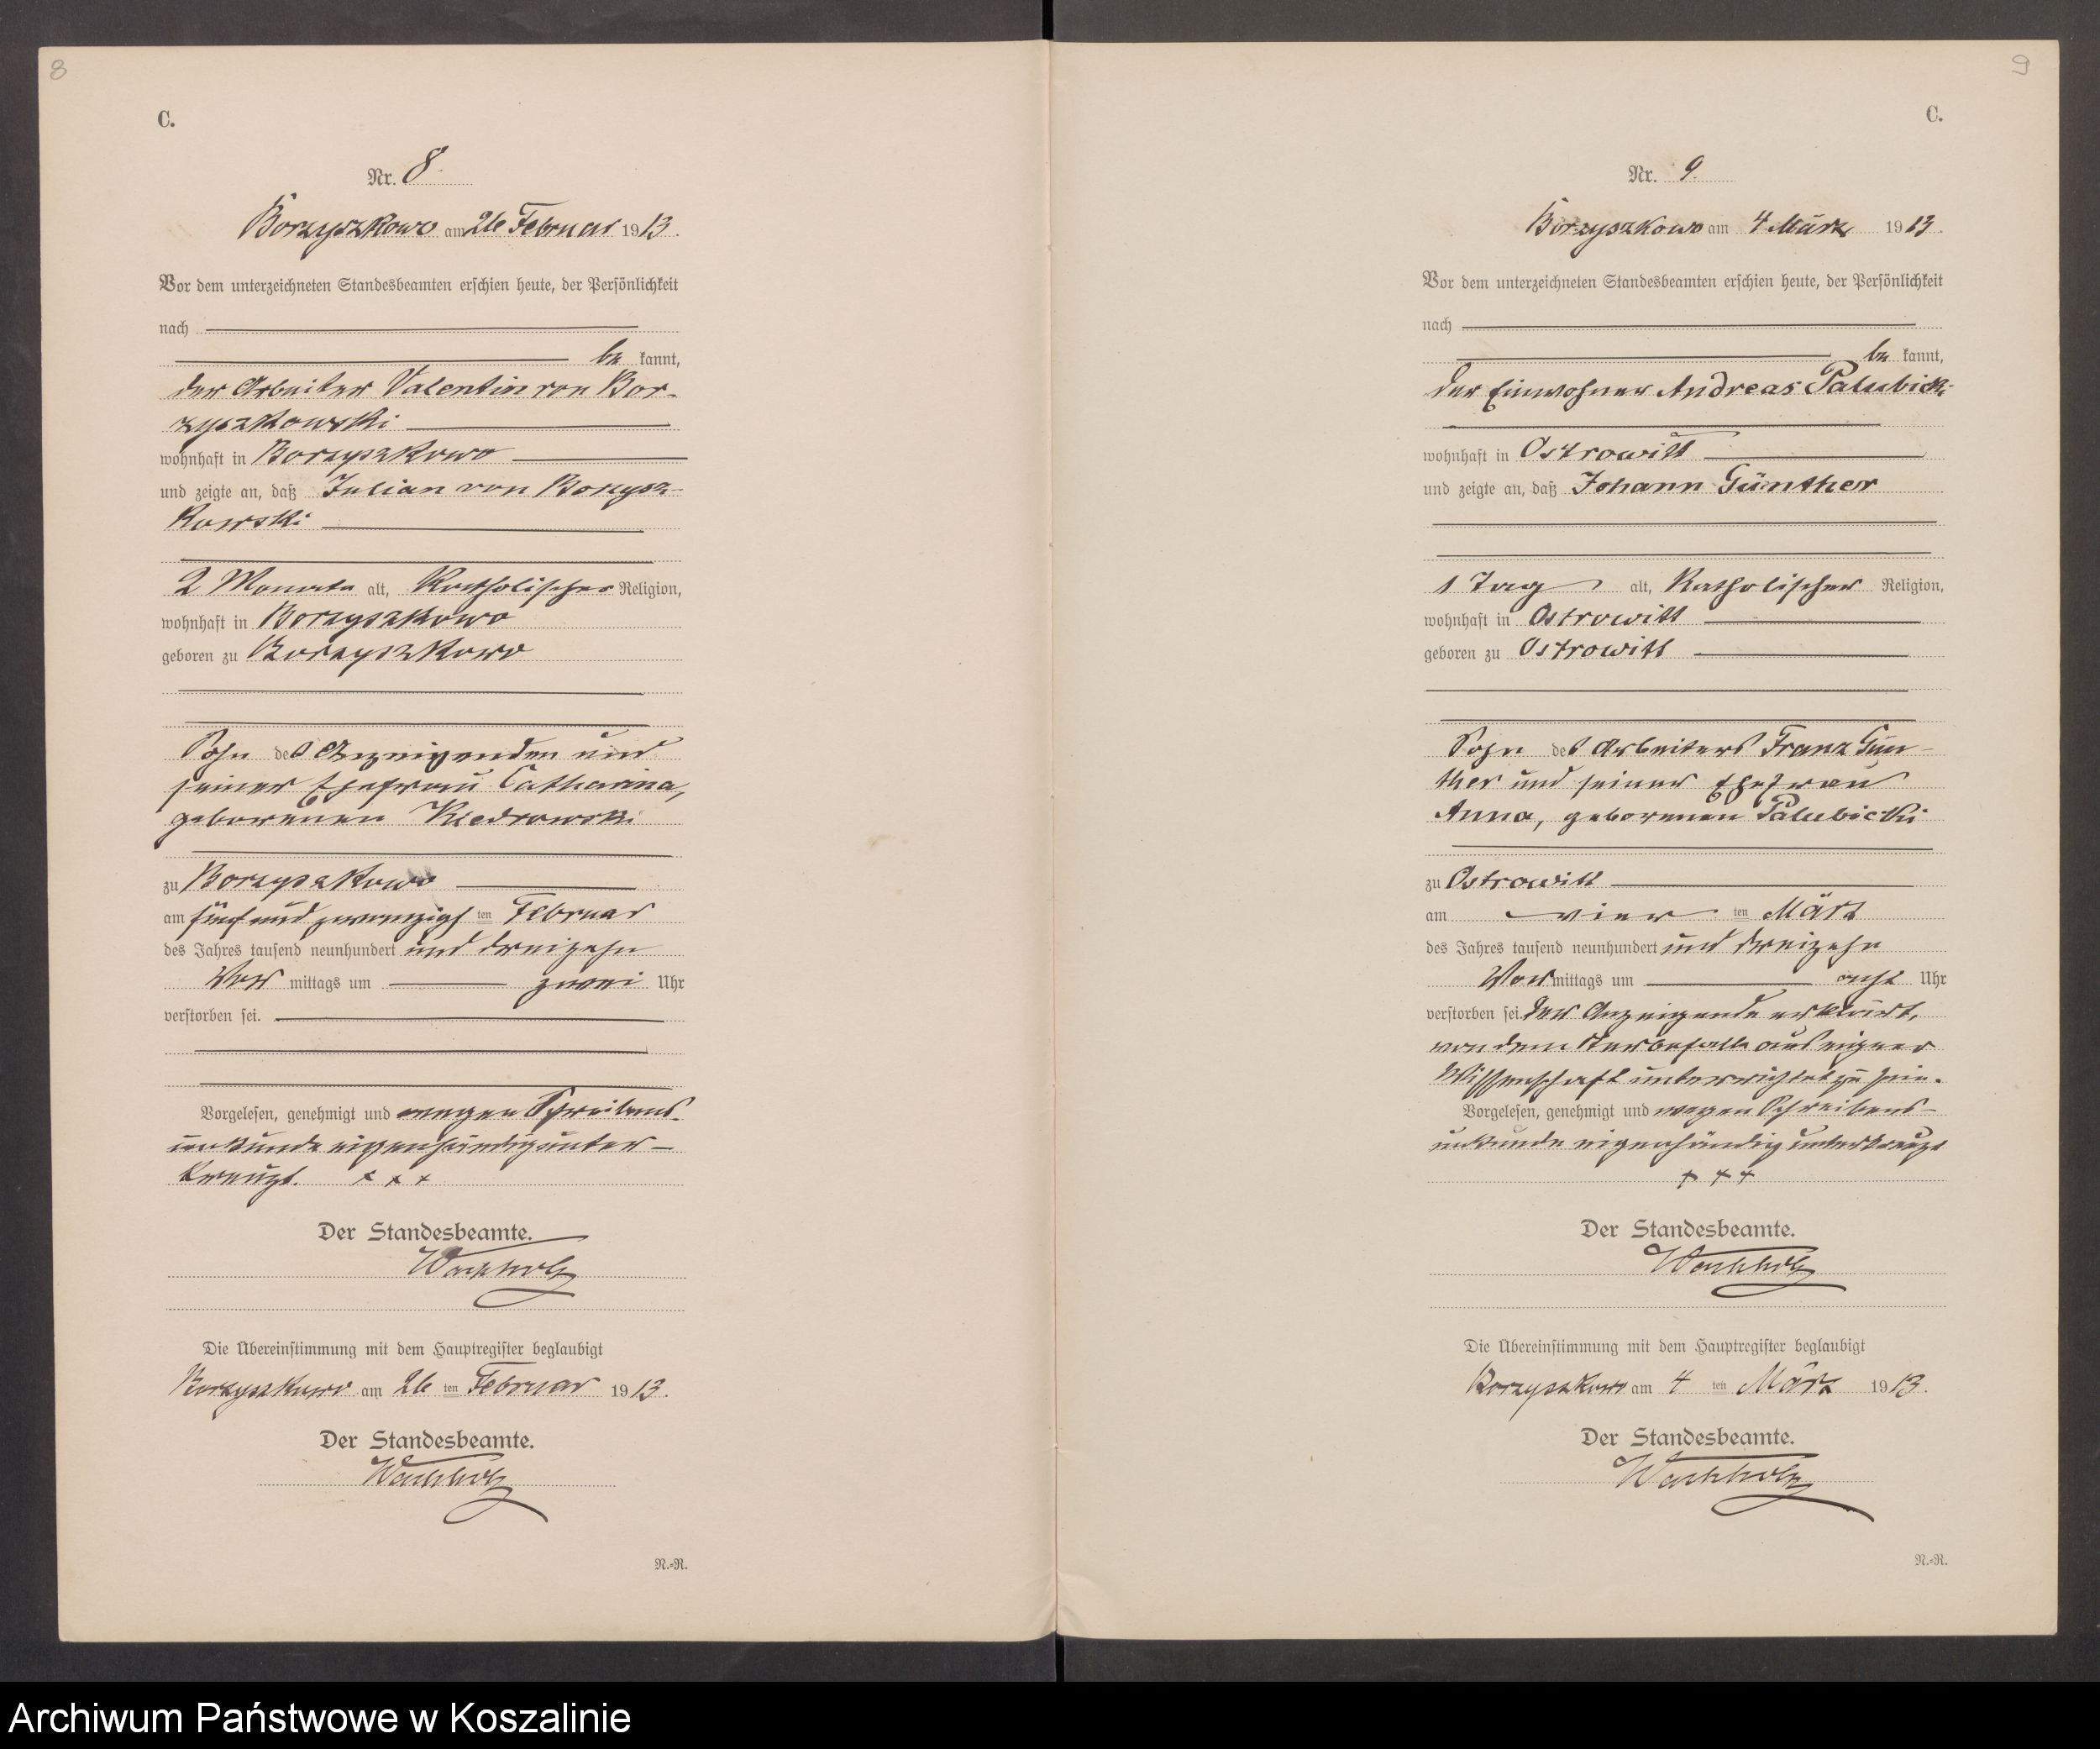 8
C.
Nr. 8.
Borzyszkowo am 26 Februar 1913.
Vor dem unterzeichneten Standesbeamten erschien heute, der Persönlichkeit
nach
be kannt,
der Arbeiter Valentin von Bor-
zyszkowski
wohnhaft in Borzyszkowo
und zeigte an, daß Julian von Borzysz-
kowski
2 Monate alt, Katholischer Religion,
wohnhaft in Borzyszkowo
geboren zu Borzyszkowo
Sohn des Anzeigenden und
seiner Ehefrau Catharina,
geborenen Kiedrowski
zu Borzyszkowo
am fünf und zwanzigsten Februar
des Jahres tausend neunhundert und dreizehn
Vor mittags um zwei Uhr
verstorben sei.
Vorgelesen, genehmigt und wegen Schreibens-
unkunde eigenhändig unter-
kreuzt. + + +
Der Standesbeamte.
Wachholz
Die Übereinstimmung mit dem Hauptregister beglaubigt
Borzyszkowo am 26 ten Februar 1913.
Der Standesbeamte.
Wachholz
N.-R.
9
C.
Nr. 9.
Borzyszkowo am 4 März 1913.
Vor dem unterzeichneten Standesbeamten erschien heute, der Persönlichkeit
nach
be kannt,
der Einwohner Andreas Palubicki
wohnhaft in Ostrowitt
und zeigte an, daß Johann Günther
1 Tag alt, Katholischer Religion,
wohnhaft in Ostrowitt
geboren zu Ostrowitt
Sohn des Arbeiters Franz Gün-
ther und seiner Ehefrau
Anna, geborenen Palubicki
zu Ostrowitt
am vier ten März
des Jahres tausend neunhundert und dreizehn
Vor mittags um acht Uhr
verstorben sei. Der Anzeigende erklärt,
von dem Sterbefalle aus eigner
Wissenschaft unterrichtet zu sein.
Vorgelesen, genehmigt und wegen Schreibens-
unkunde eigenhändig unterkreuzt
+ + +
Der Standesbeamte.
Wachholz
Die Übereinstimmung mit dem Hauptregister beglaubigt
Borzyszkowo am 4 ten März 1913.
Der Standesbeamte.
Wachholz
N.-R.
Archiwum Państwowe w Koszalinie